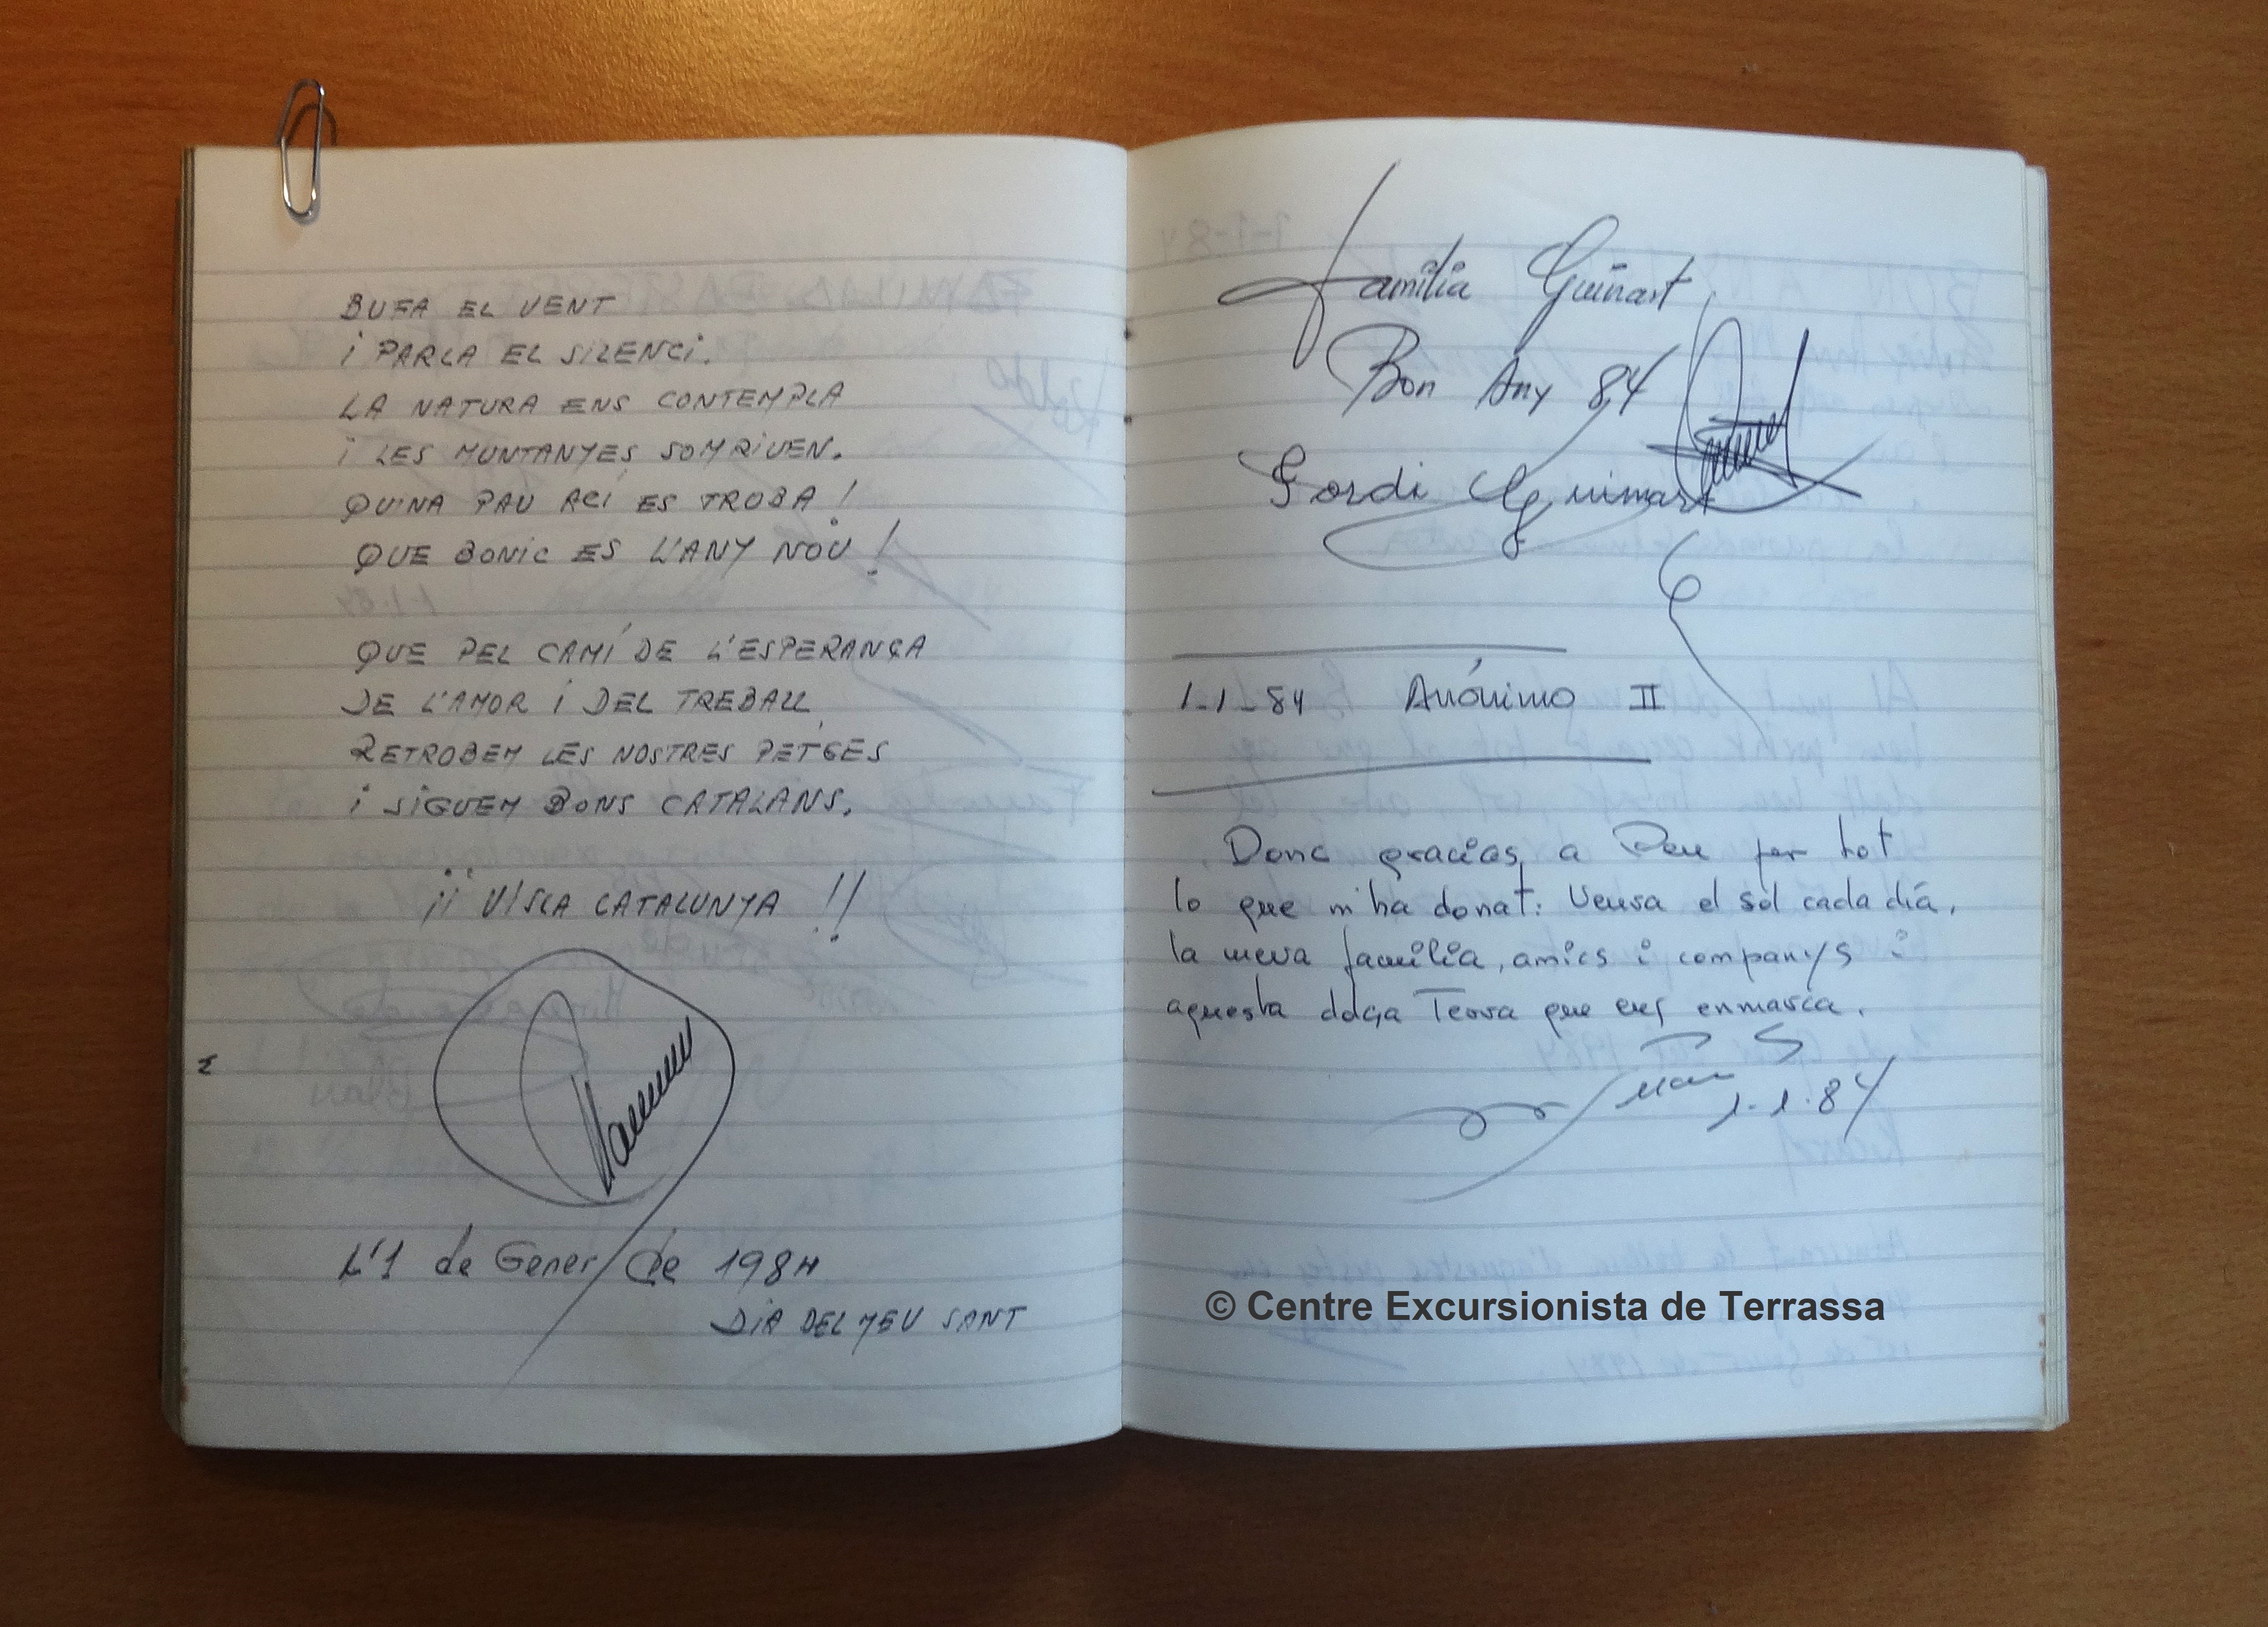 BUFA EL VENT
i PARLA EL SiLENCi.
LA NATURA ENS CONTEMPLA
i LES MUNTANYES SOMRiUEN.
QUINA PAU ACÍ ES TROBA!
QUE BONiC ES L'ANY NOU!
QUE PEL CAMÍ DE L'ESPERANÇA
DE L'AMOR i DEL TREBALL,
RETROBEM LES NOSTRES PETGES
i SiGUEM BONS CATALANS.
¡¡ VISCA CATALUNYA !!
L'1 de Gener de 1984
DIA DEL MEU SANT
Familia Guinart
Bon Any 84
Jordi Guinart
1-1-84 Anónimo II
Donc gracias a Deu per tot
lo que m'ha donat: Veura el sol cada dia,
la meva familia, amics i companys i
aquesta dolça Terra que ens enmarca.
1-1-84
© Centre Excursionista de Terrassa